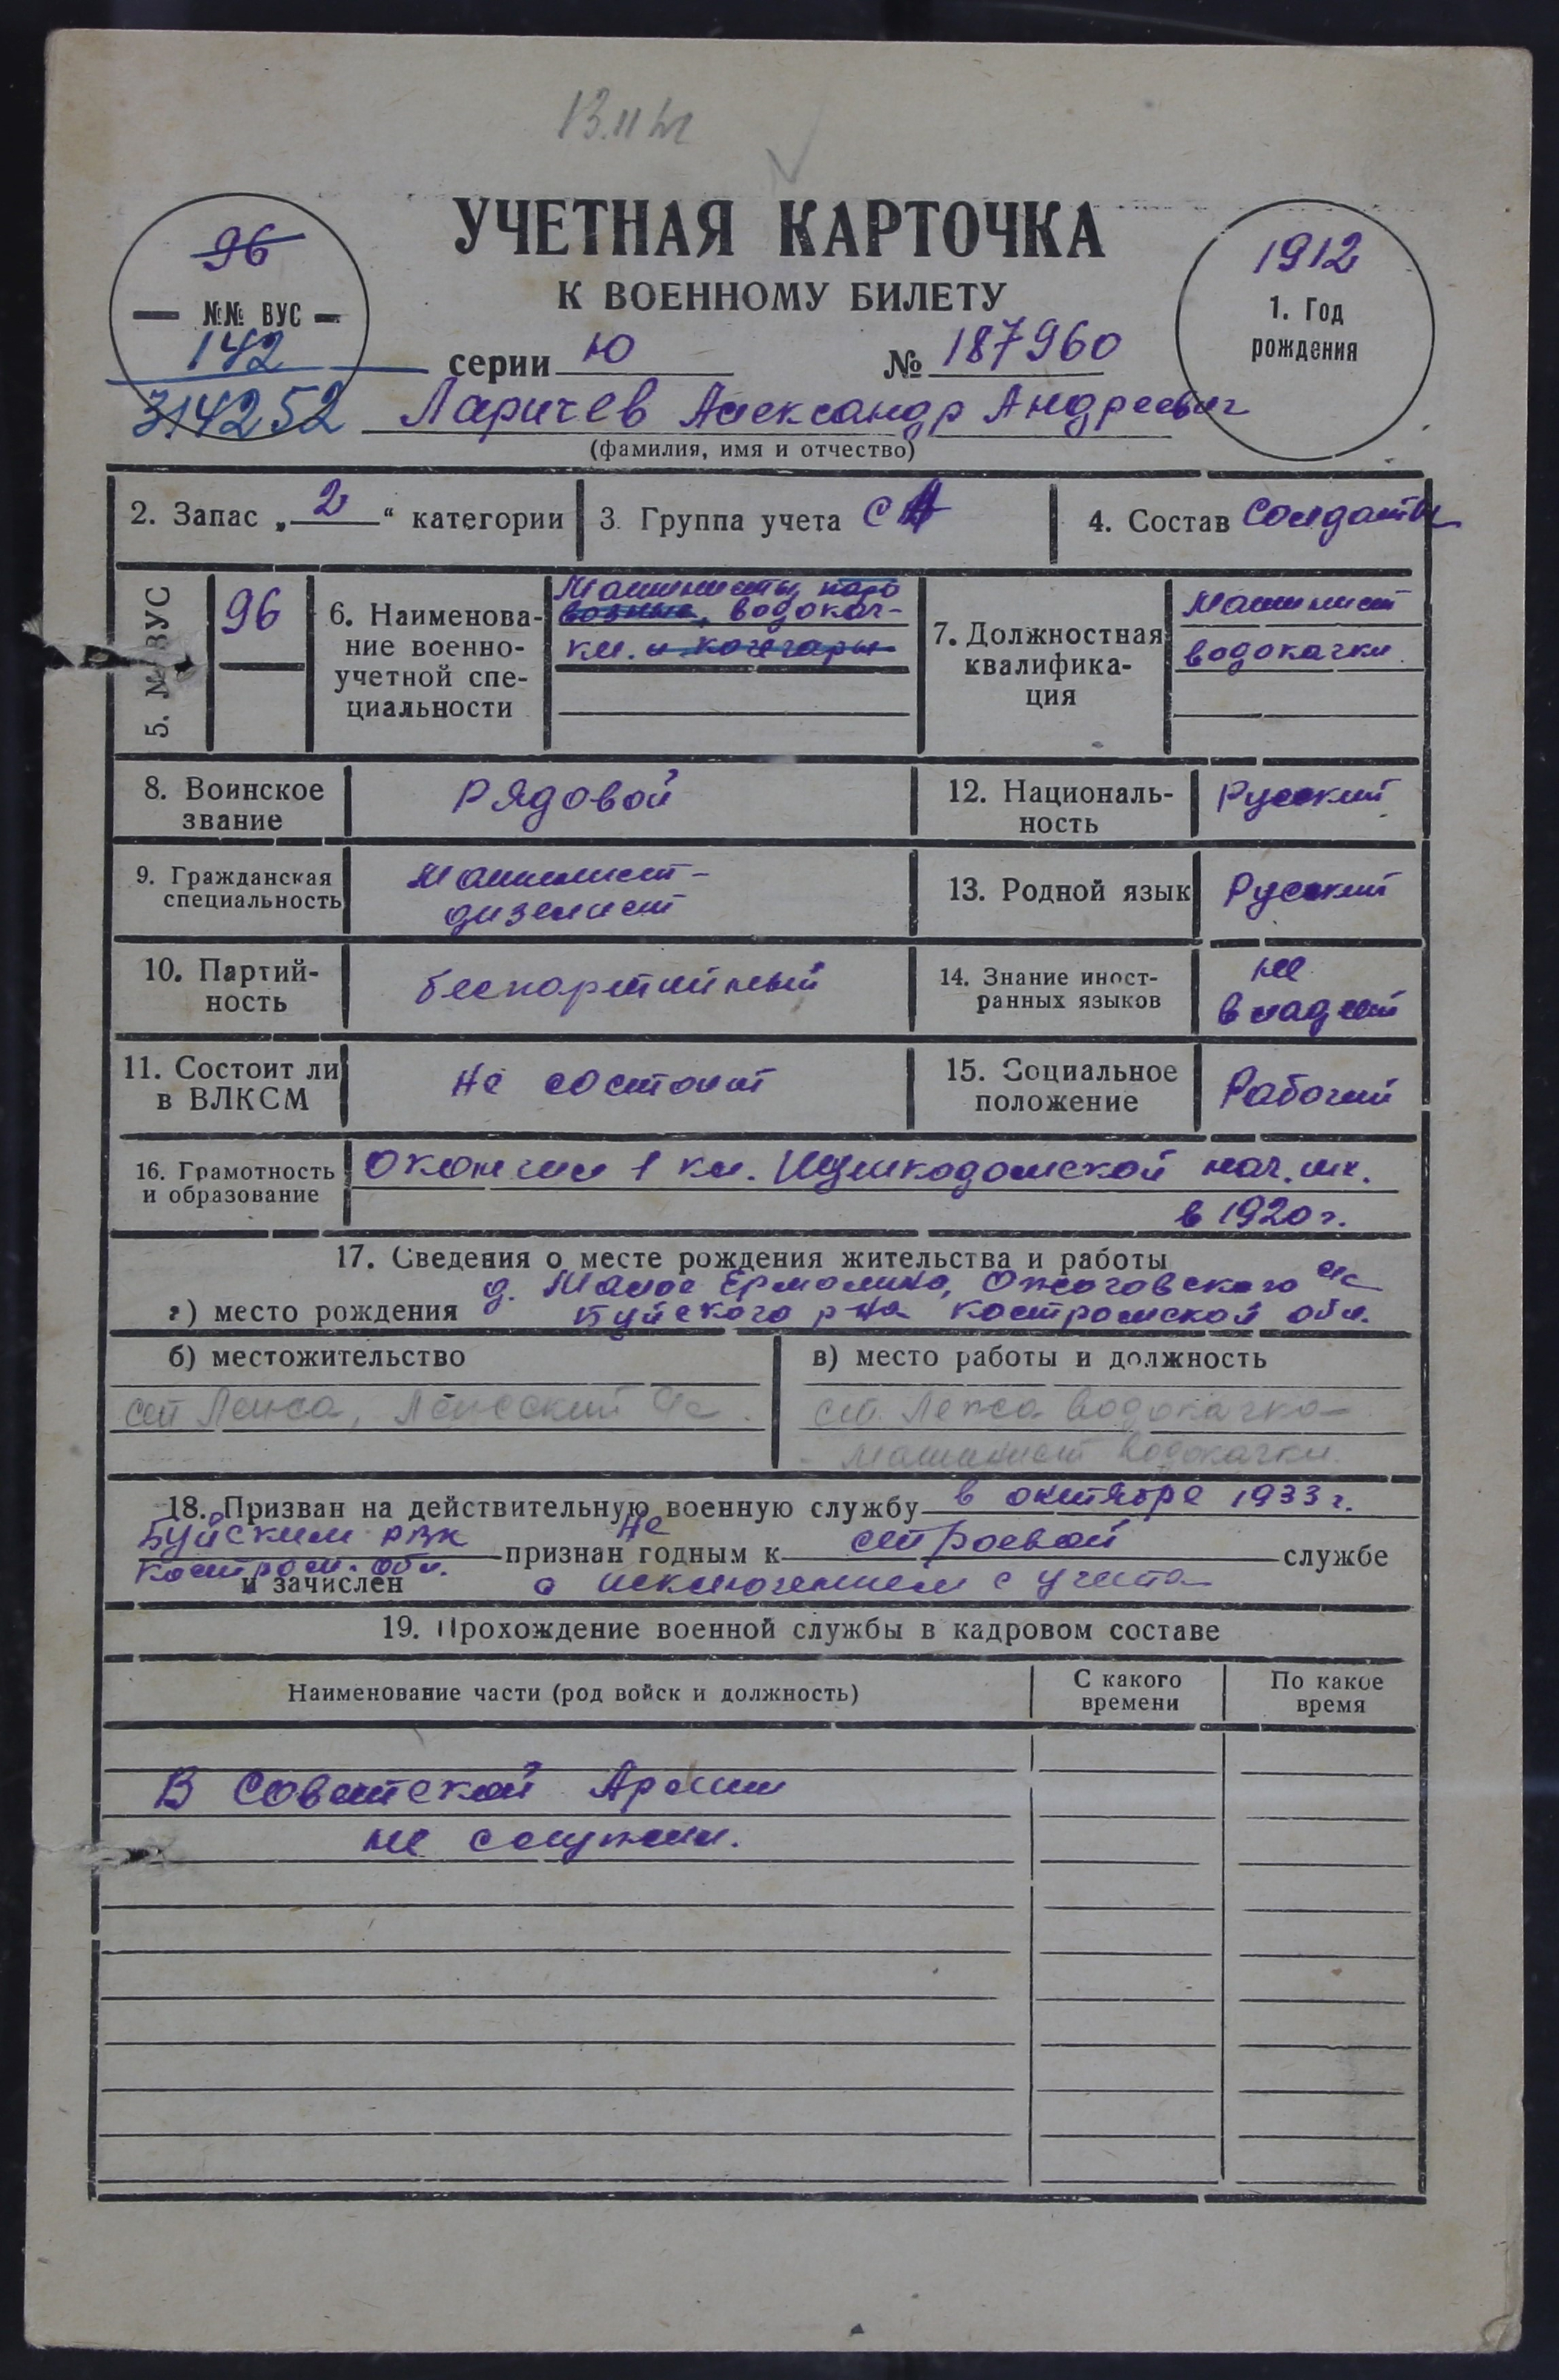 УЧЕТНАЯ КАРТОЧКА
К ВОЕННОМУ БИЛЕТУ
96
№№ ВУС
142
314252
1912
1. Год
рождения
серии Ю № 187960
Ларичев Александр Андреевич
(фамилия, имя и отчество)
2. Запас „2“ категории
3. Группа учета СА
4. Состав Солдаты
5. № ВУС
96
6. Наименова-
ние военно-
учетной спе-
циальности
Машинисты паро
возные, водокач-
ки. и кочегары
7. Должностная
квалифика-
ция
Машинист
водокачки
8. Воинское
звание
Рядовой
12. Националь-
ность
Русский
9. Гражданская
специальность
Машинист-
дизелист
13. Родной язык
Русский
10. Партий-
ность
беспартийный
14. Знание иност-
ранных языков
не
владеет
11. Состоит ли
в ВЛКСМ
Не состоит
15. Социальное
положение
Рабочий
16. Грамотность
и образование
Окончил 1 кл. нач. шк.
в 1920 г.
17. Сведения о месте рождения жительства и работы
а) место рождения
д. Малое Ермолино, Ожоговского с/с
Буйского р-на Костромской обл.
б) местожительство
ст Лепса,
в) место работы и должность
ст. Лепса водокачка
машинист водокачки.
18. Призван на действительную военную службу в октябре 1933 г.
Буйским РВК
Костром. обл.
не
признан годным к строевой службе
и зачислен с исключением с учета
19. Прохождение военной службы в кадровом составе
Наименование части (род войск и должность)
С какого
времени
По какое
время
В Советской Армии
не служил.